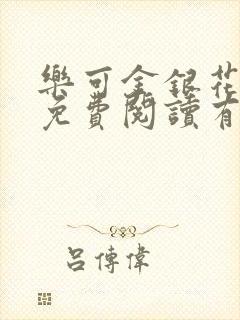 樂可金銀花
免費閱讀有
呂傳偉